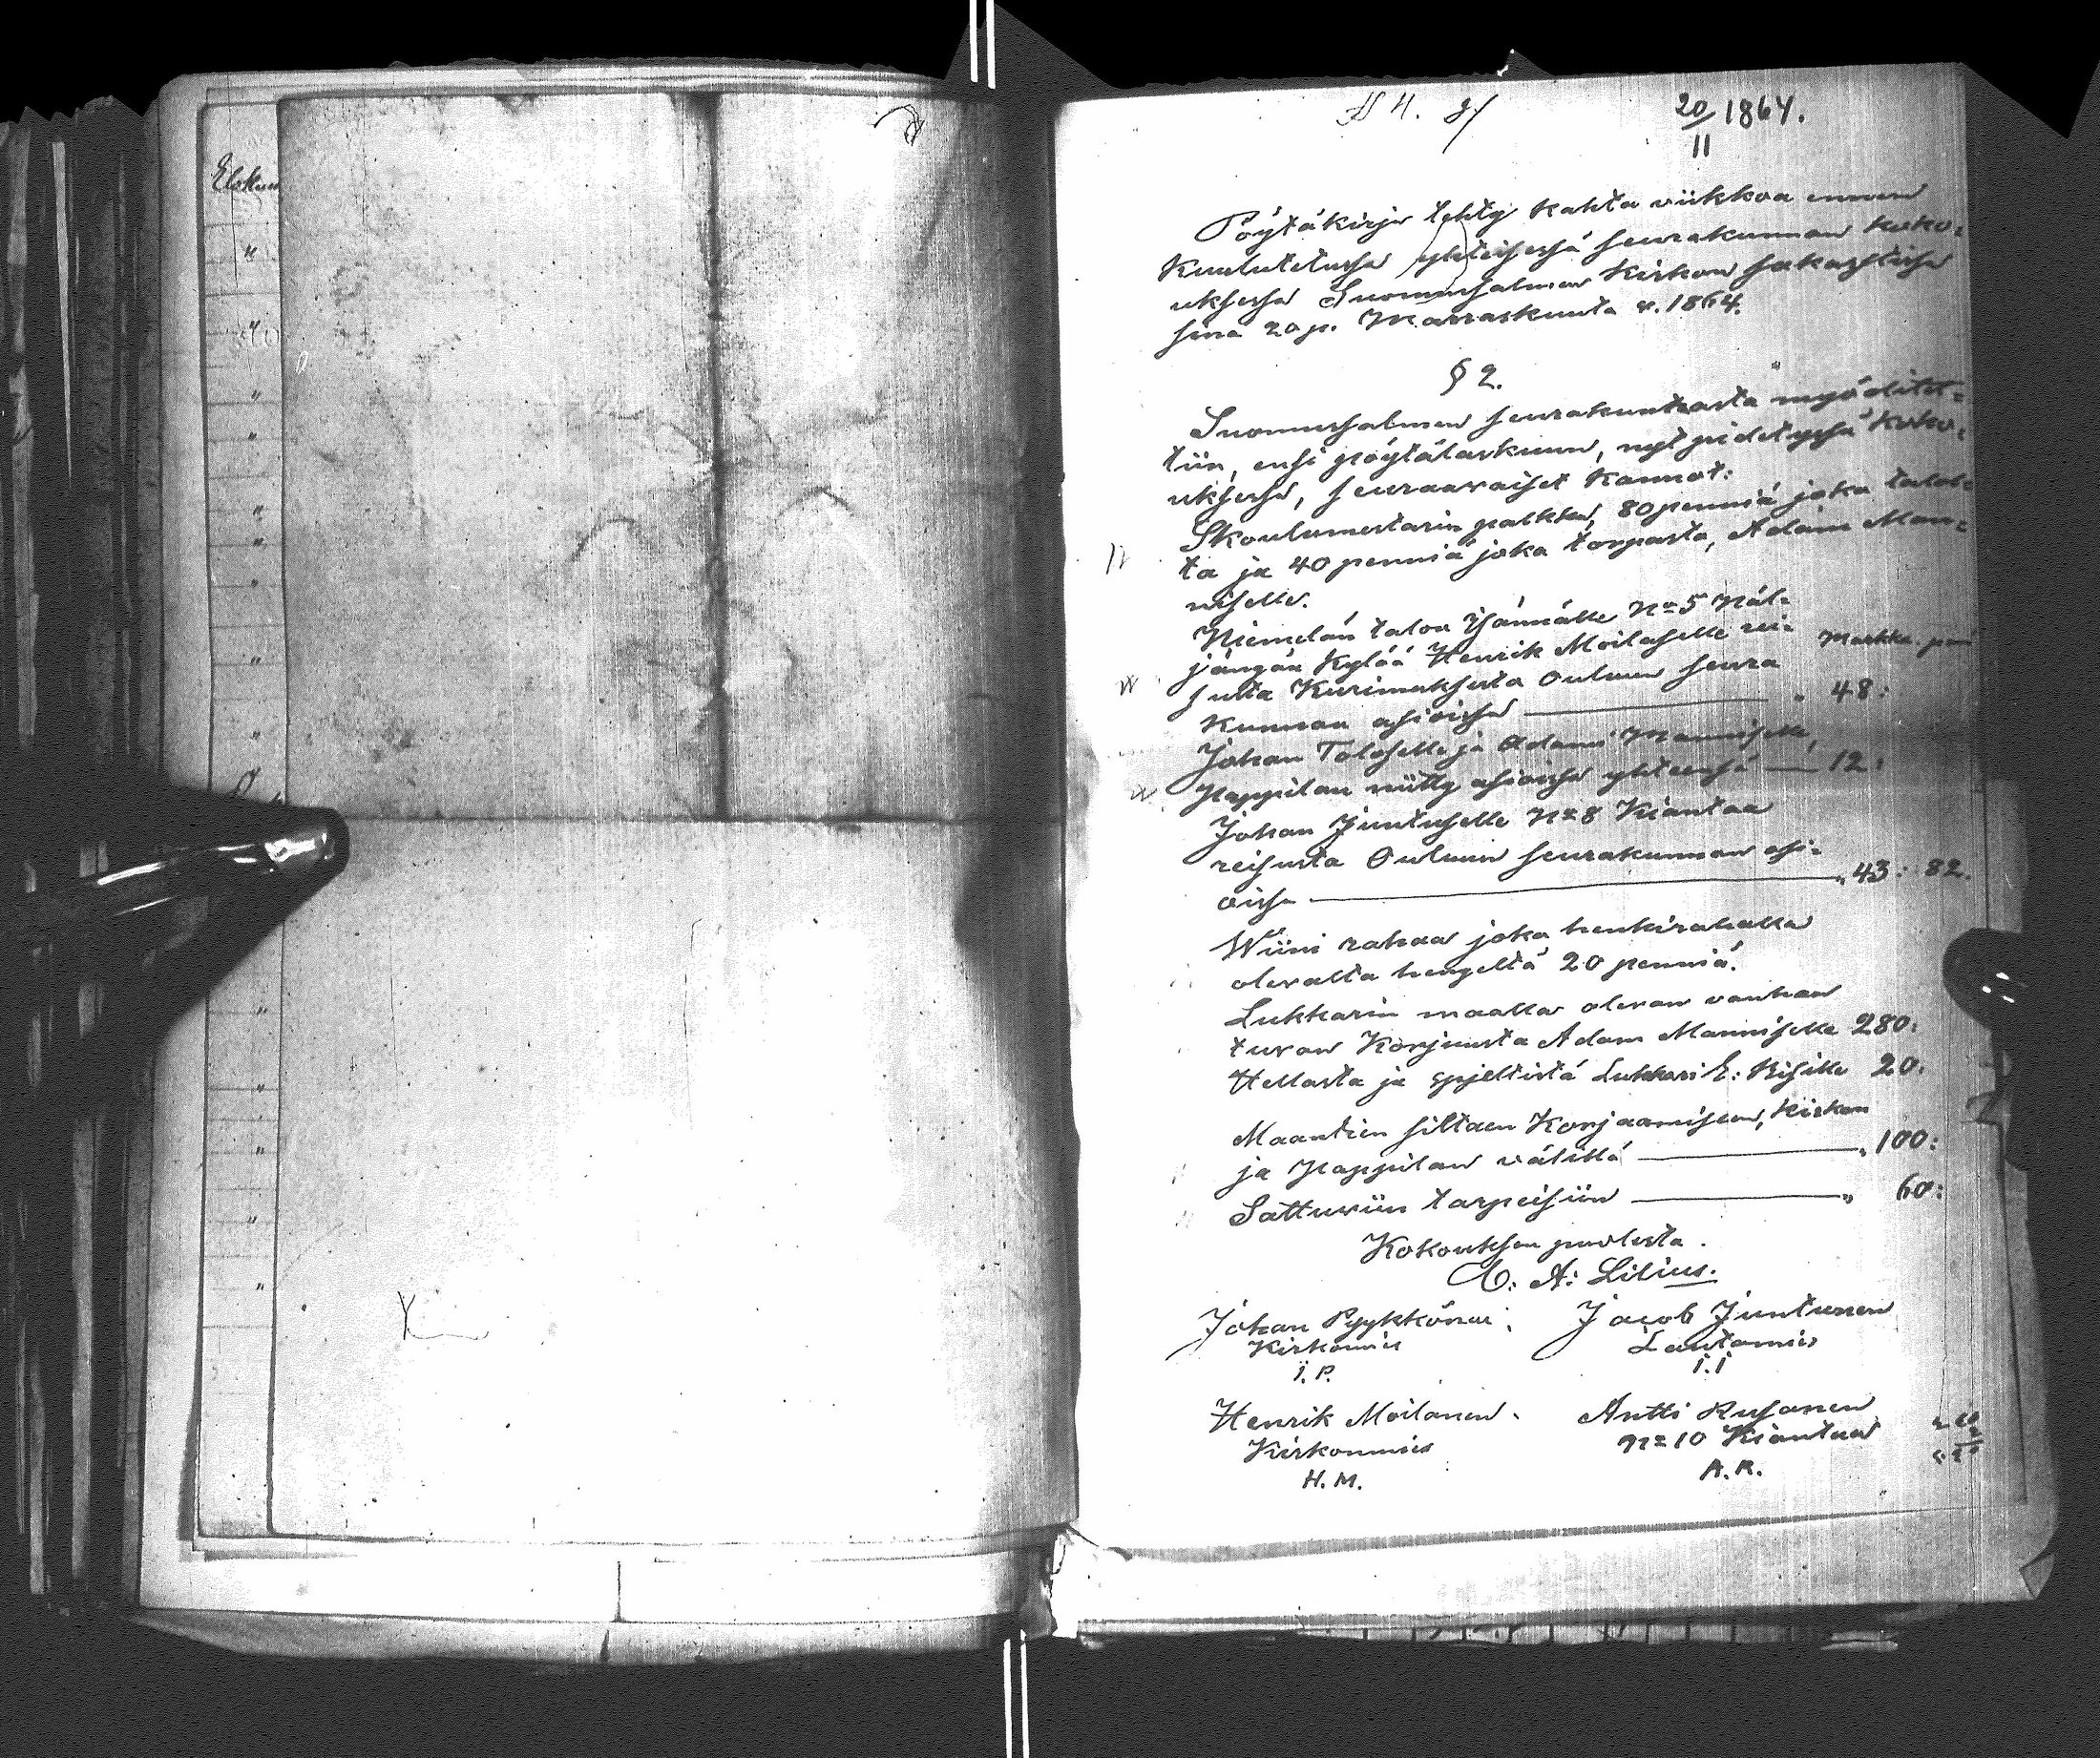 Elskun
20/11 1864.
Pöytäkirja tehty kahta viikkoa ennen
kuulutetussa yhteisessä seurakunnan koko-
uksessa Suomussalmen Kirkon sakastissa
sina 20 p. Marraskuuta v. 1864.
§ 2.
Suomussalmen seurakunnasta myödität-
tiin, ensi pöytälaskuun, nyt pidetyssä koko-
uksessa, seuraavaiset kannot:
Skoulumestarin palkka, 80 penniä joka talos-
ta ja 40 penniä joka torpasta, Adam Man-
niselle.
Niemelän talon Isännälle No 5 Näl-
jängän Kylää Henrik Moilaselle rei-
susta Kurimuksesta Ouluun seura
Markka
kunnan asioissa " 48:
Johan Toloselle ja Adam Manniselle,
Pappilan niitty asioissa yhteensä 12:
Johan Juntuselle No 8 Kiantaa
reisusta Ouluun seurakunnan asi-
oissa " 43: 82.
Wiini rahaa joka henkirahalla
olevalta hengeltä 20 penniä.
Lukkarin maalla olevan vanhan
tuvan Korjuusta Adam Manniselle 280:
Hellasta ja spjeltistä Lukkari E: Kisille 20:
Maantien siltaen Korjaamiseen, Kirkon
ja Pappilan välillä " 100:
Sattuviin tarpeisiin " 60:
Kokouksen puolesta.
C: A: Lilius.
Johan Pyykkönen; Jacob Juntunen
Kirkomies Lautamies
I. P. I. I
Henrik Moilanen. Antti Kusanen
Kirkonmies No 10 Kiantaa
H. M. A. K.